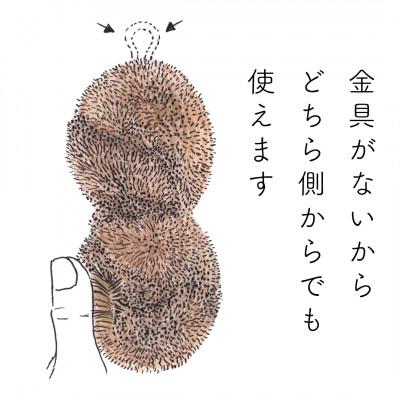 金具がないから
どちら側からでも
使えます